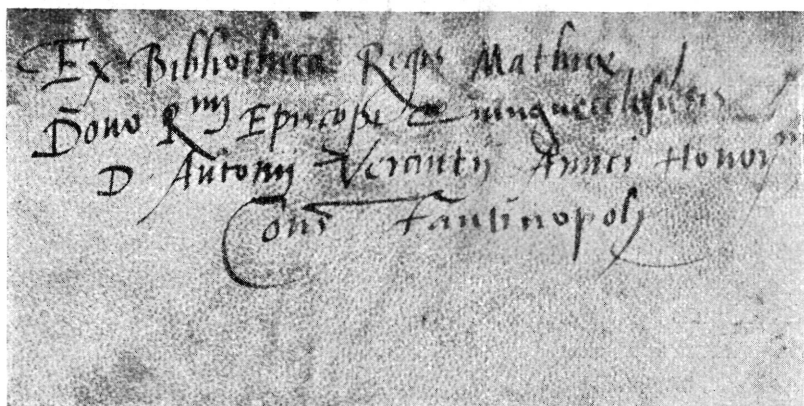 Ex Bibliotheca Regis Mathiæ
Dono Rmi Episcopi Quinqueecclesiensis
D Antonij Verantii Amici Honor
Constantinopoli